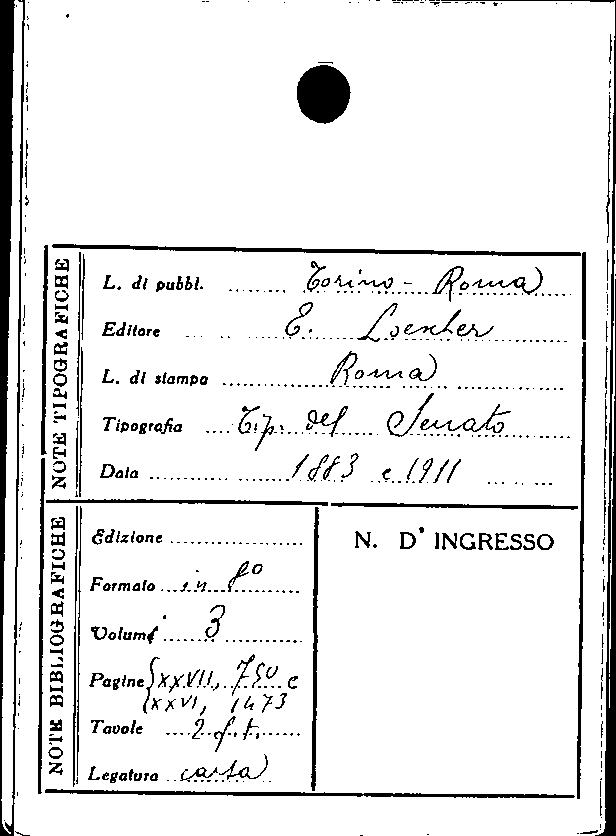 NOTE TIPOGRAFICHE
L. di pubbl. Torino - Roma
Editore E. Loescher
L. di stampa Roma
Tipografia Tip. del Senato
Data 1883 e 1911
NOTE BIBLIOGRAFICHE
Edizione
Formato in 8º
Volumi 3
Pagine XXVII, 750 e
XXVI, 1473
Tavole 2 f.t.
Legatura carta
N. D' INGRESSO